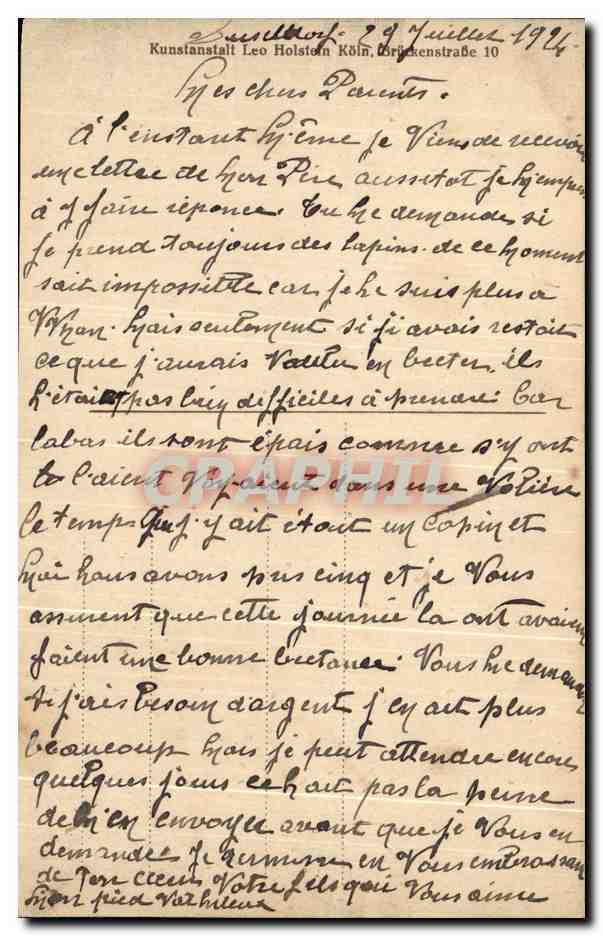 Dusseldorf. 29 Juillet 1924.
Kunstanstalt Leo Holstein Köln, Brückenstraße 10
Mes chers Parents.
A l'instant M-ême je Viens de recevoir
une lettre de Mon Père aussetot je M'empres
à y faire réponce. Tu Me demandes si
je prend toujours des lapins. de ce Moment
sait impossitte car je ne suis plus a
Mais seulement si ji avais restait
ce que j'aurais Voullu en becter, ils
n'étai pas bein difficiles à prendre. Car
labas ils sont épais comme s'y ont
l'aient dans une Volière
le temps que j'y ait étaut un copin et
Moi nous avons pris cinq et je Vous
assurent que cette journée la ont avaien
faient une bonne bectance. Vous me demandez
si j'ais besoin d'argent j'en act plus
beaucoup Mais je peut attendre encore
quelques jours ce nait pas la peine
de M'en envoyer avant que je Vous en
demandes Je termine en Vous embrassan
de Ton Coeur Votre fils qui Vous aime
Mon pied
CPAPHIL